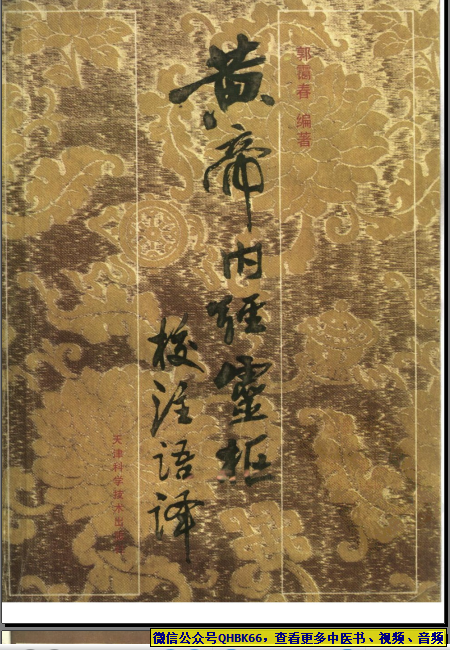 郭霭春 编著
黄帝内经灵枢
校注语译
天津科学技术出版社
微信公众号QHBK66，查看更多中医书、视频、音频